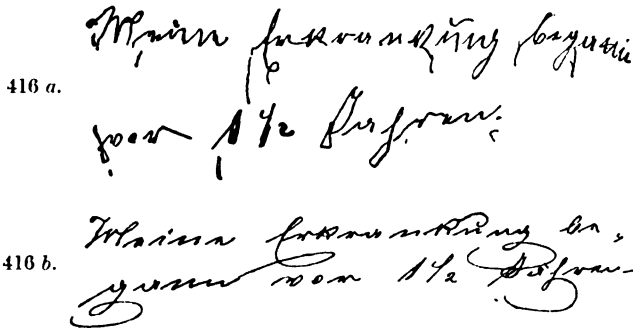 416 a.
Meine Erkrankung begann
vor 1 1/2 Jahren.
416 b.
Meine Erkrankung be-
gann vor 1 1/2 Jahren